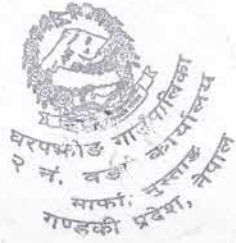 घरपझोङ गाउँपालिका
२ नं. वडा कार्यालय
मार्फा, मुस्ताङ
गण्डकी प्रदेश, नेपाल